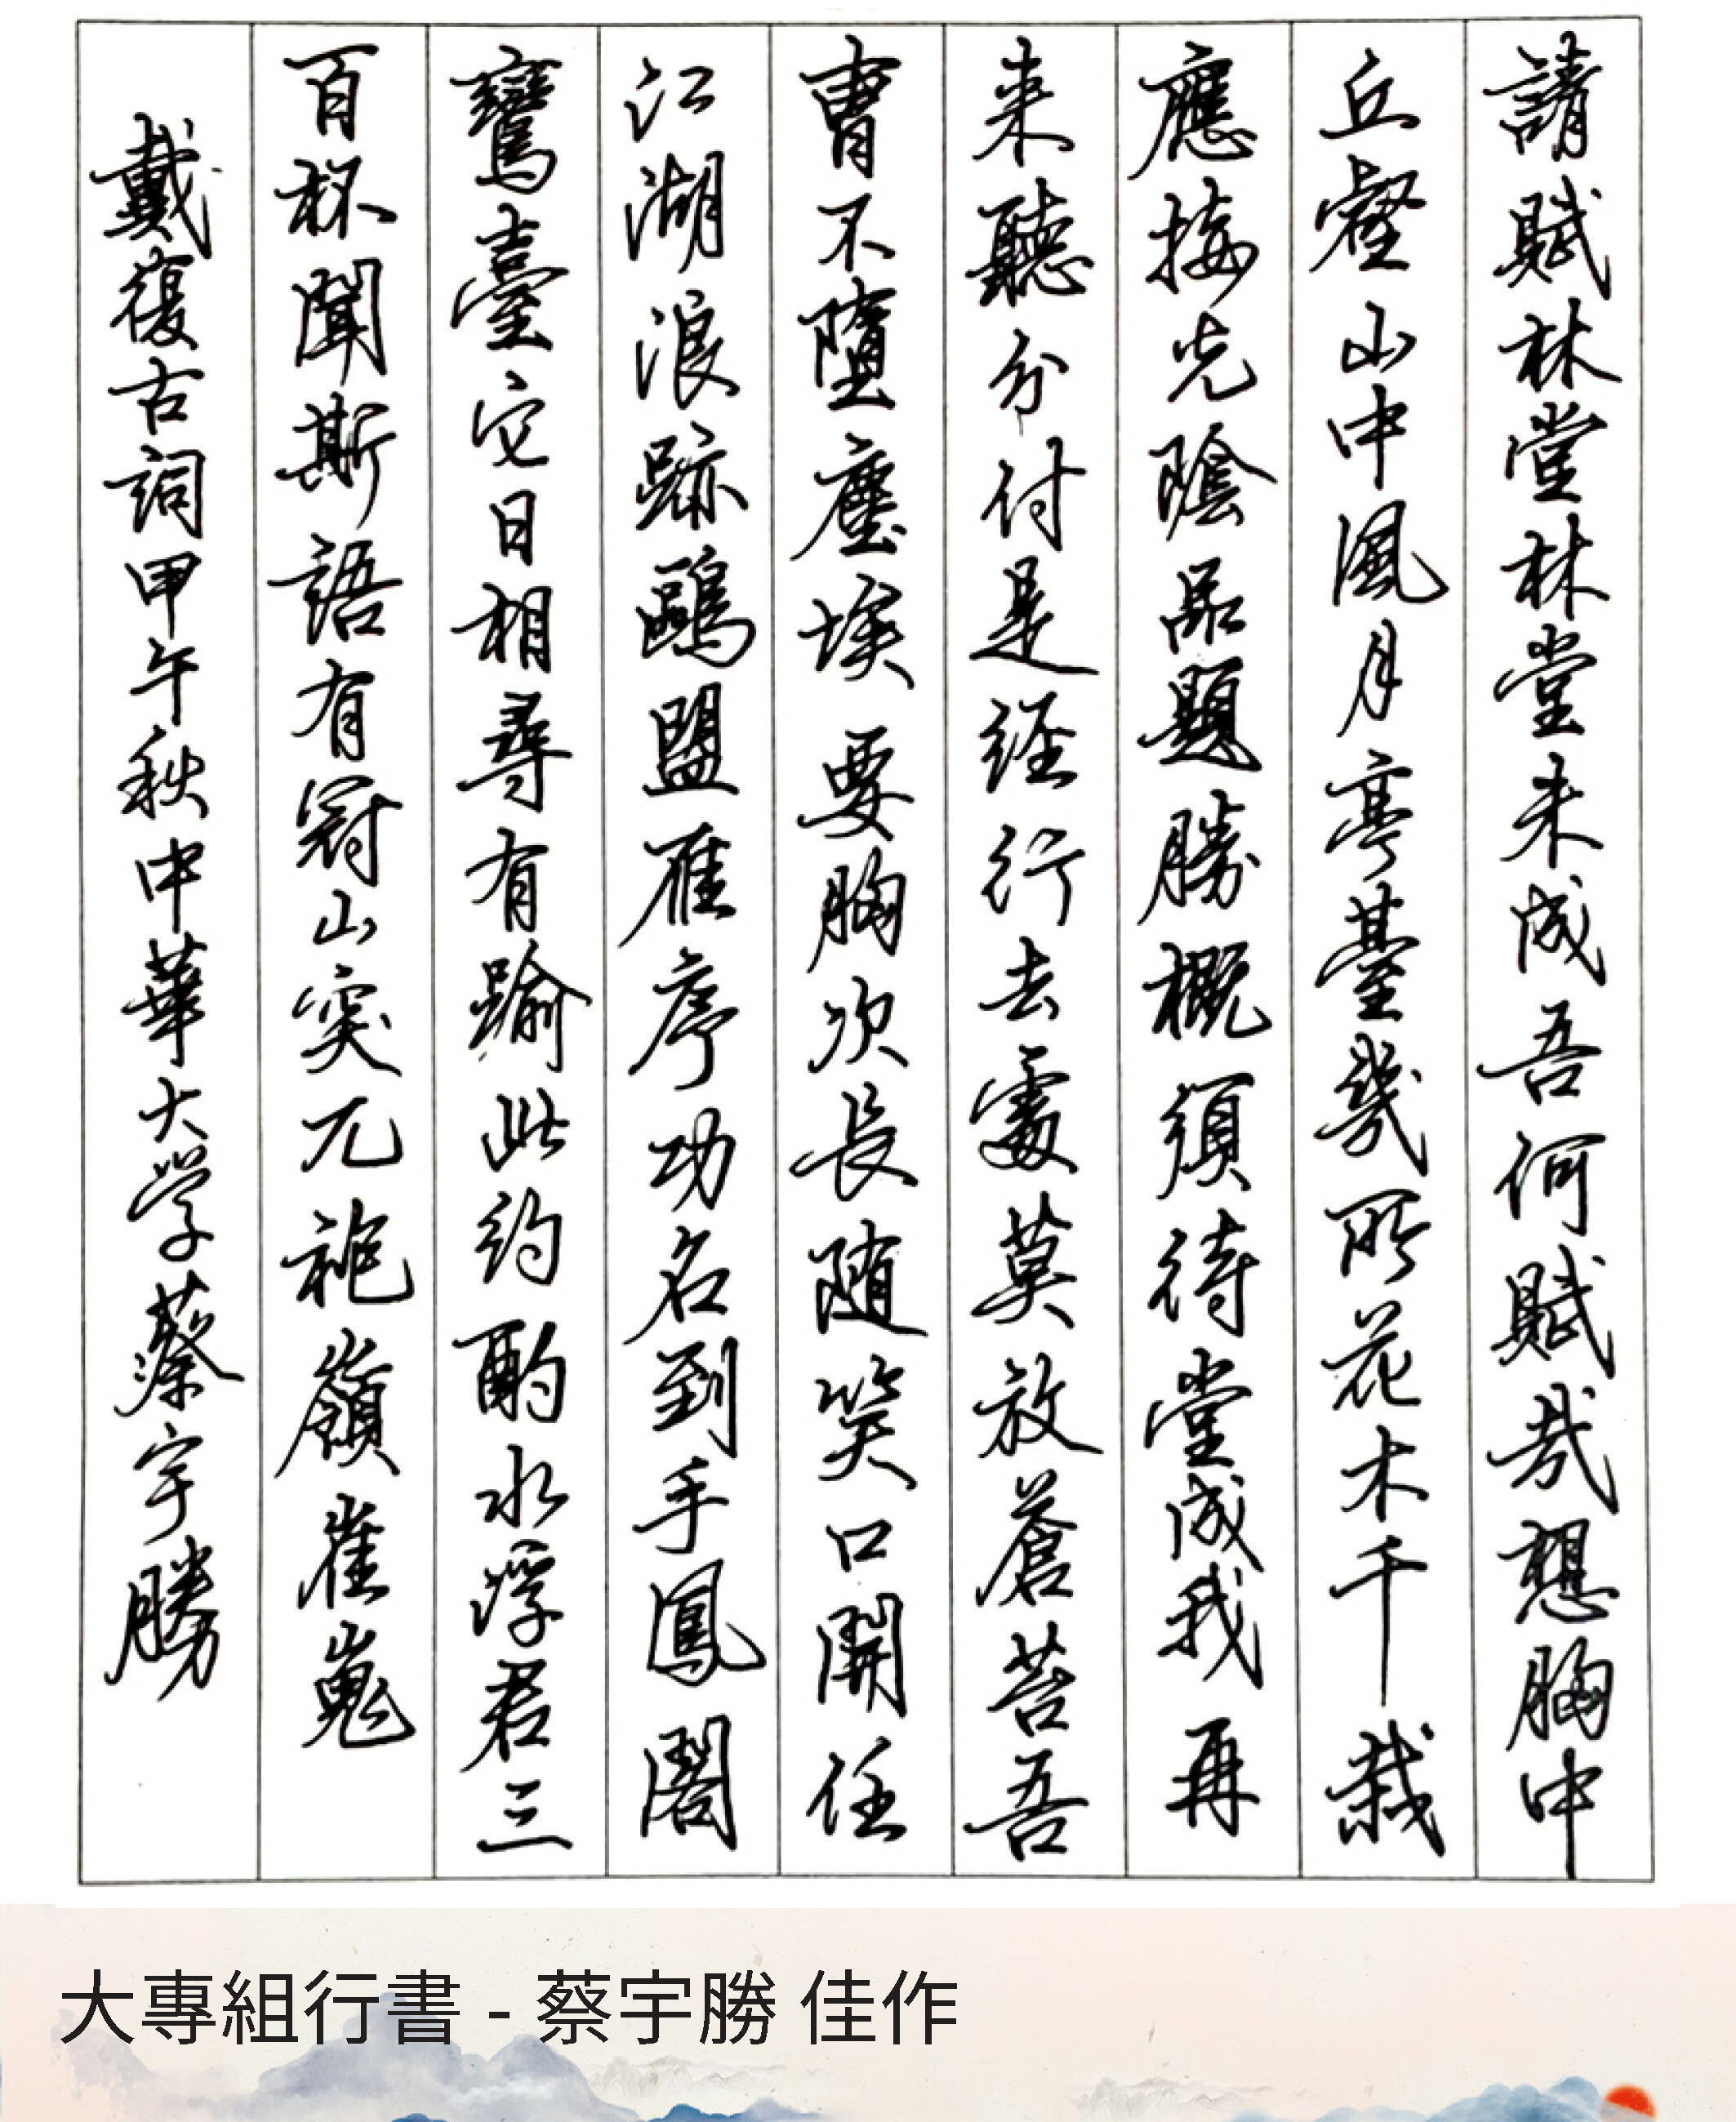 請賦林堂林堂未成吾何賦哉想胸中
丘壑山中風月亭臺幾所花木千栽
應接光陰品題勝概須待堂成我再
來聽分付是經行去處莫放蒼苔吾
曹不墮塵埃要胸次長隨笑口開任
江湖浪跡鷗盟雁序功名到手鳳閣
鸞臺它日相尋有踰此約酌水浮君三
百杯聞斯語有冠山突兀袍嶺崔嵬
戴復古詞甲午秋中華大学蔡宇勝
大專組行書 - 蔡宇勝 佳作